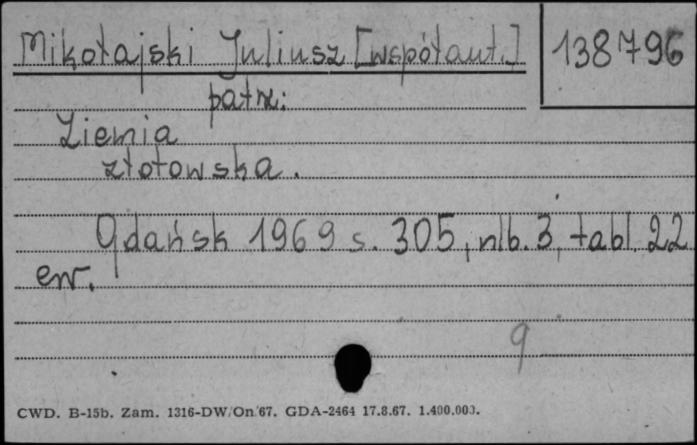 Mikołajski Juliusz [współaut.]
138796
patrz:
Ziemia
złotowska.
Gdańsk 1969 s. 305, nlb. 3, tabl. 22
err.
9
CWD. B-15b. Zam. 1316-DW/On/67. GDA-2464 17.8.67. 1.400.000.